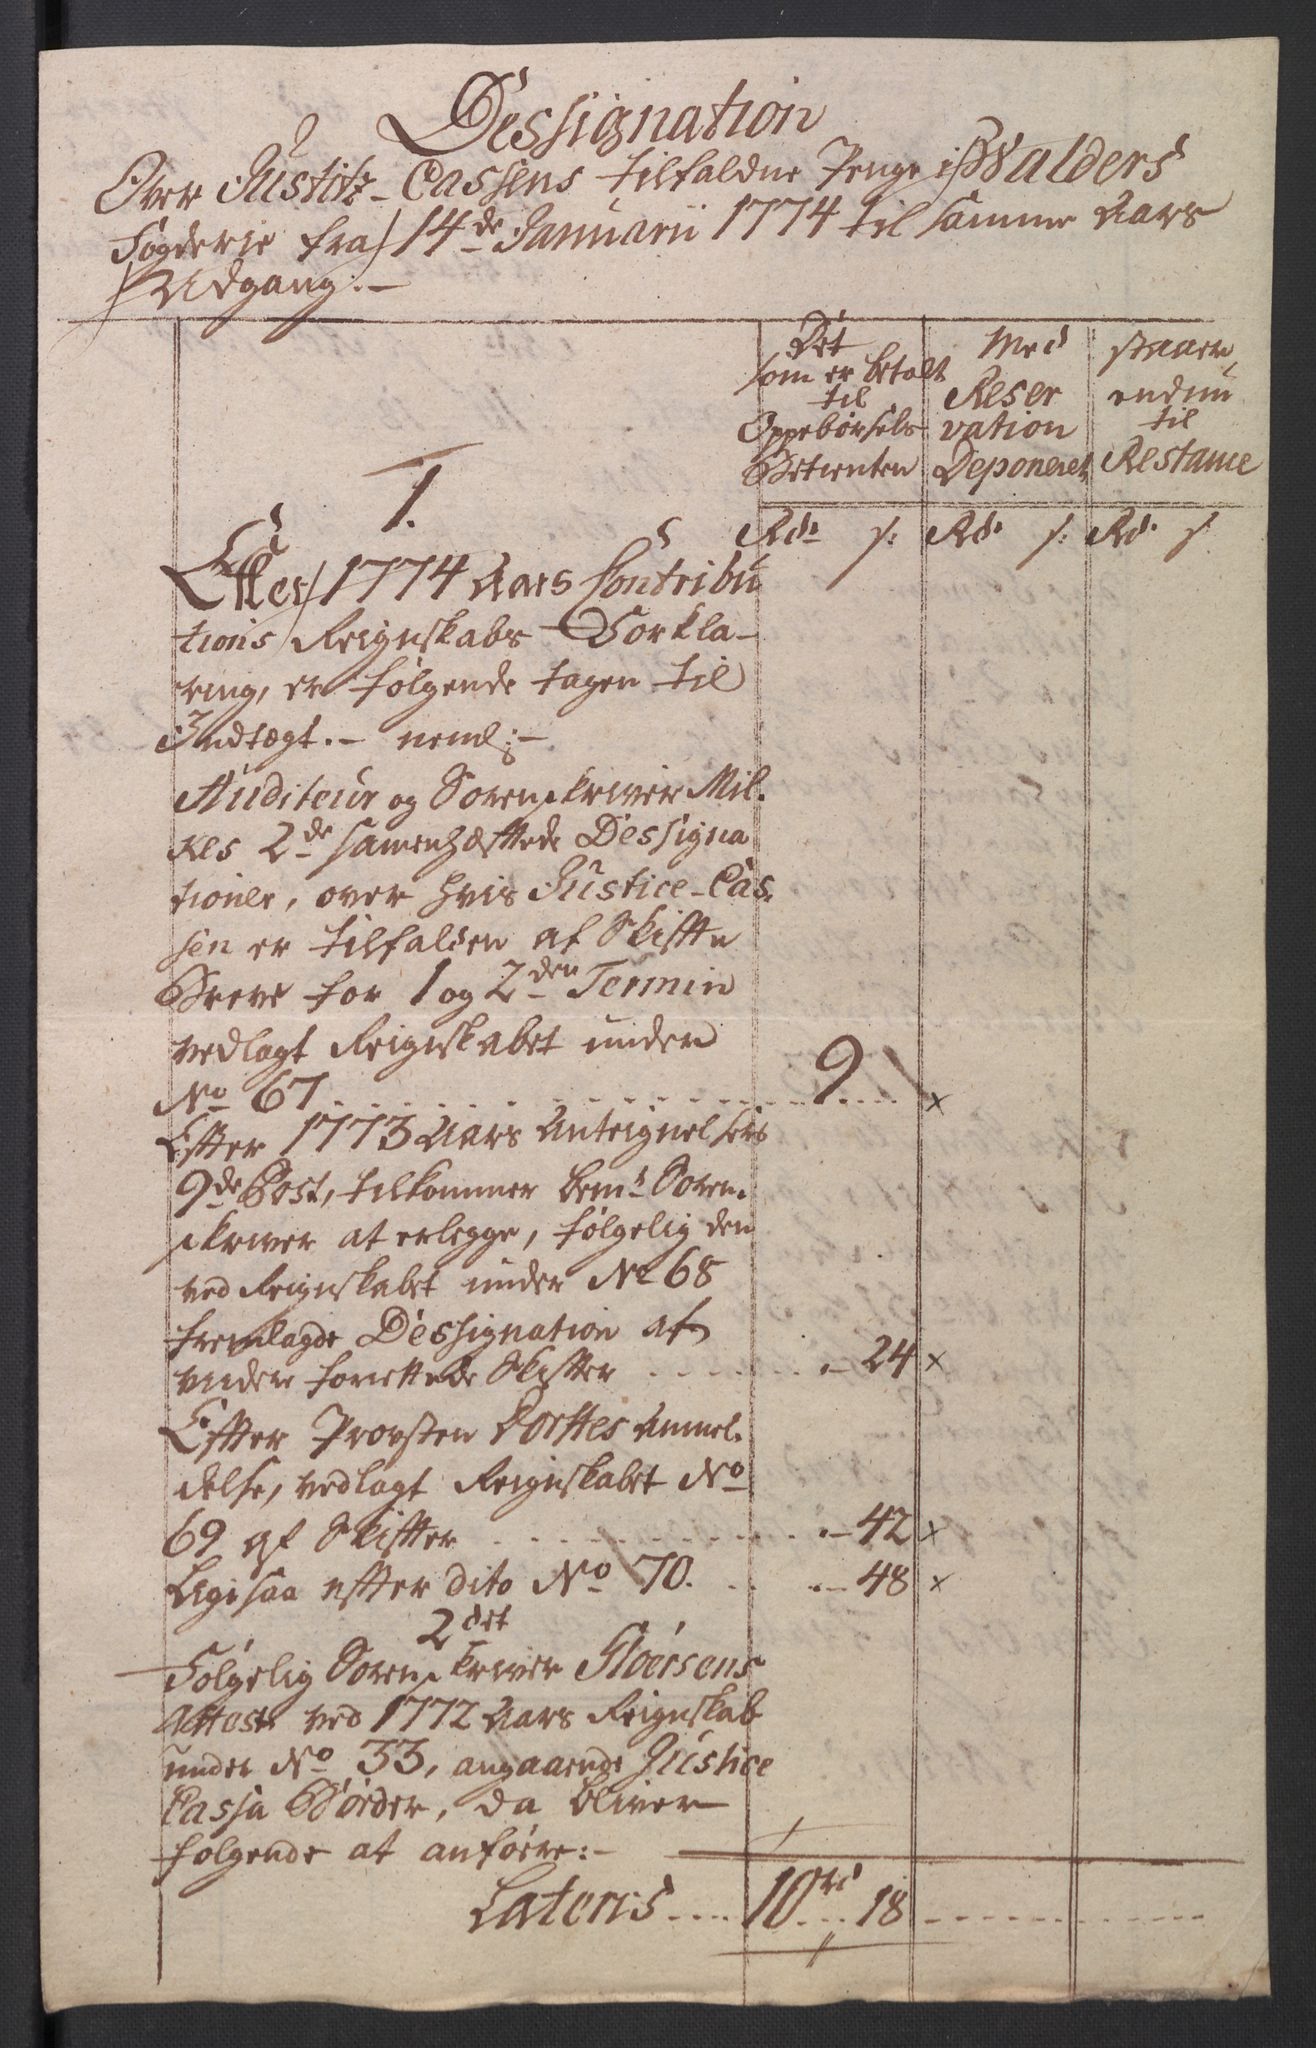 Dessignation
Over Justitz-Cassens tilfaldne Penge i Walders
Fogderie fra 14de Januarii 1774 til samme Aars
Udgang.-
Det Med staaer
som er betalt
til Reser endnu
Oppebørsels vation til
Betienten Deponeret Restance
1.
Rd. s: Rd. s: Rd. s.
Efter 1774 Aars Contribu
tions Reignskabs Forkla-
ring, er følgende tagen til
Indtægt.- neml:-
Auditeur og Sorenskriver Mil.
kes 2de samenhæfttede Dessigna
tioner, over hvis Justice-Cas.
sen er tilfalden af Skiftte
Breve for 1 og 2den Termin
vedlagt Reignskabet under
No 67 . . . . . . . . . . 9 x
Efter 1773 Aars Anteignelsers
9de Post, tilkommer bemt Soren.
skriver at erlegge, følgelig den
ved Reignskabet under No 68
fremlagde Dessignation af
under forrettede Skifter . . . . . - 24 x
Eftter Provsten Aan­mel.
delse, vedlagt Reignskabet No
69 af Skiftter . . . . . . . - 42 x
Ligesaa eftter dito No 70. . . . - 48 x
2det
Følgelig Sorenskriver Støersens
Attest ved 1772 Aars Reignskab
under No 33, angaaende Justice
Cassa Bøeder, da bliver
følgende at anføere:-
Lateris .... 10rd .. 18